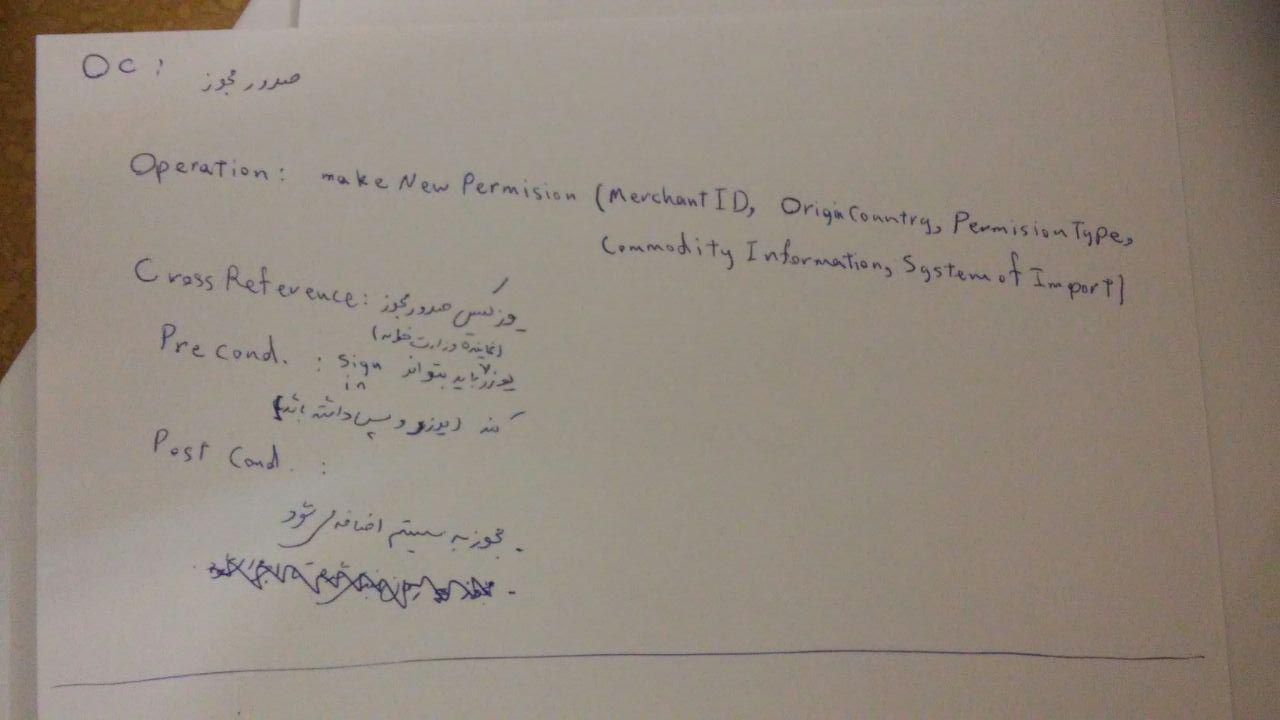 OC: صدور مجوز
Operation: make New Permision (MerchantID, OriginCountry, PermisionType,
Commodity Information, System of Import)
Cross Reference: یوزکیس صدور مجوز
(نماینده وزارت خانه)
Pre cond. : یوزر باید بتواند sign in
کند (یوزر و پس داشته باشد)
Post Cond. :
. مجوز به سیستم اضافه می شود